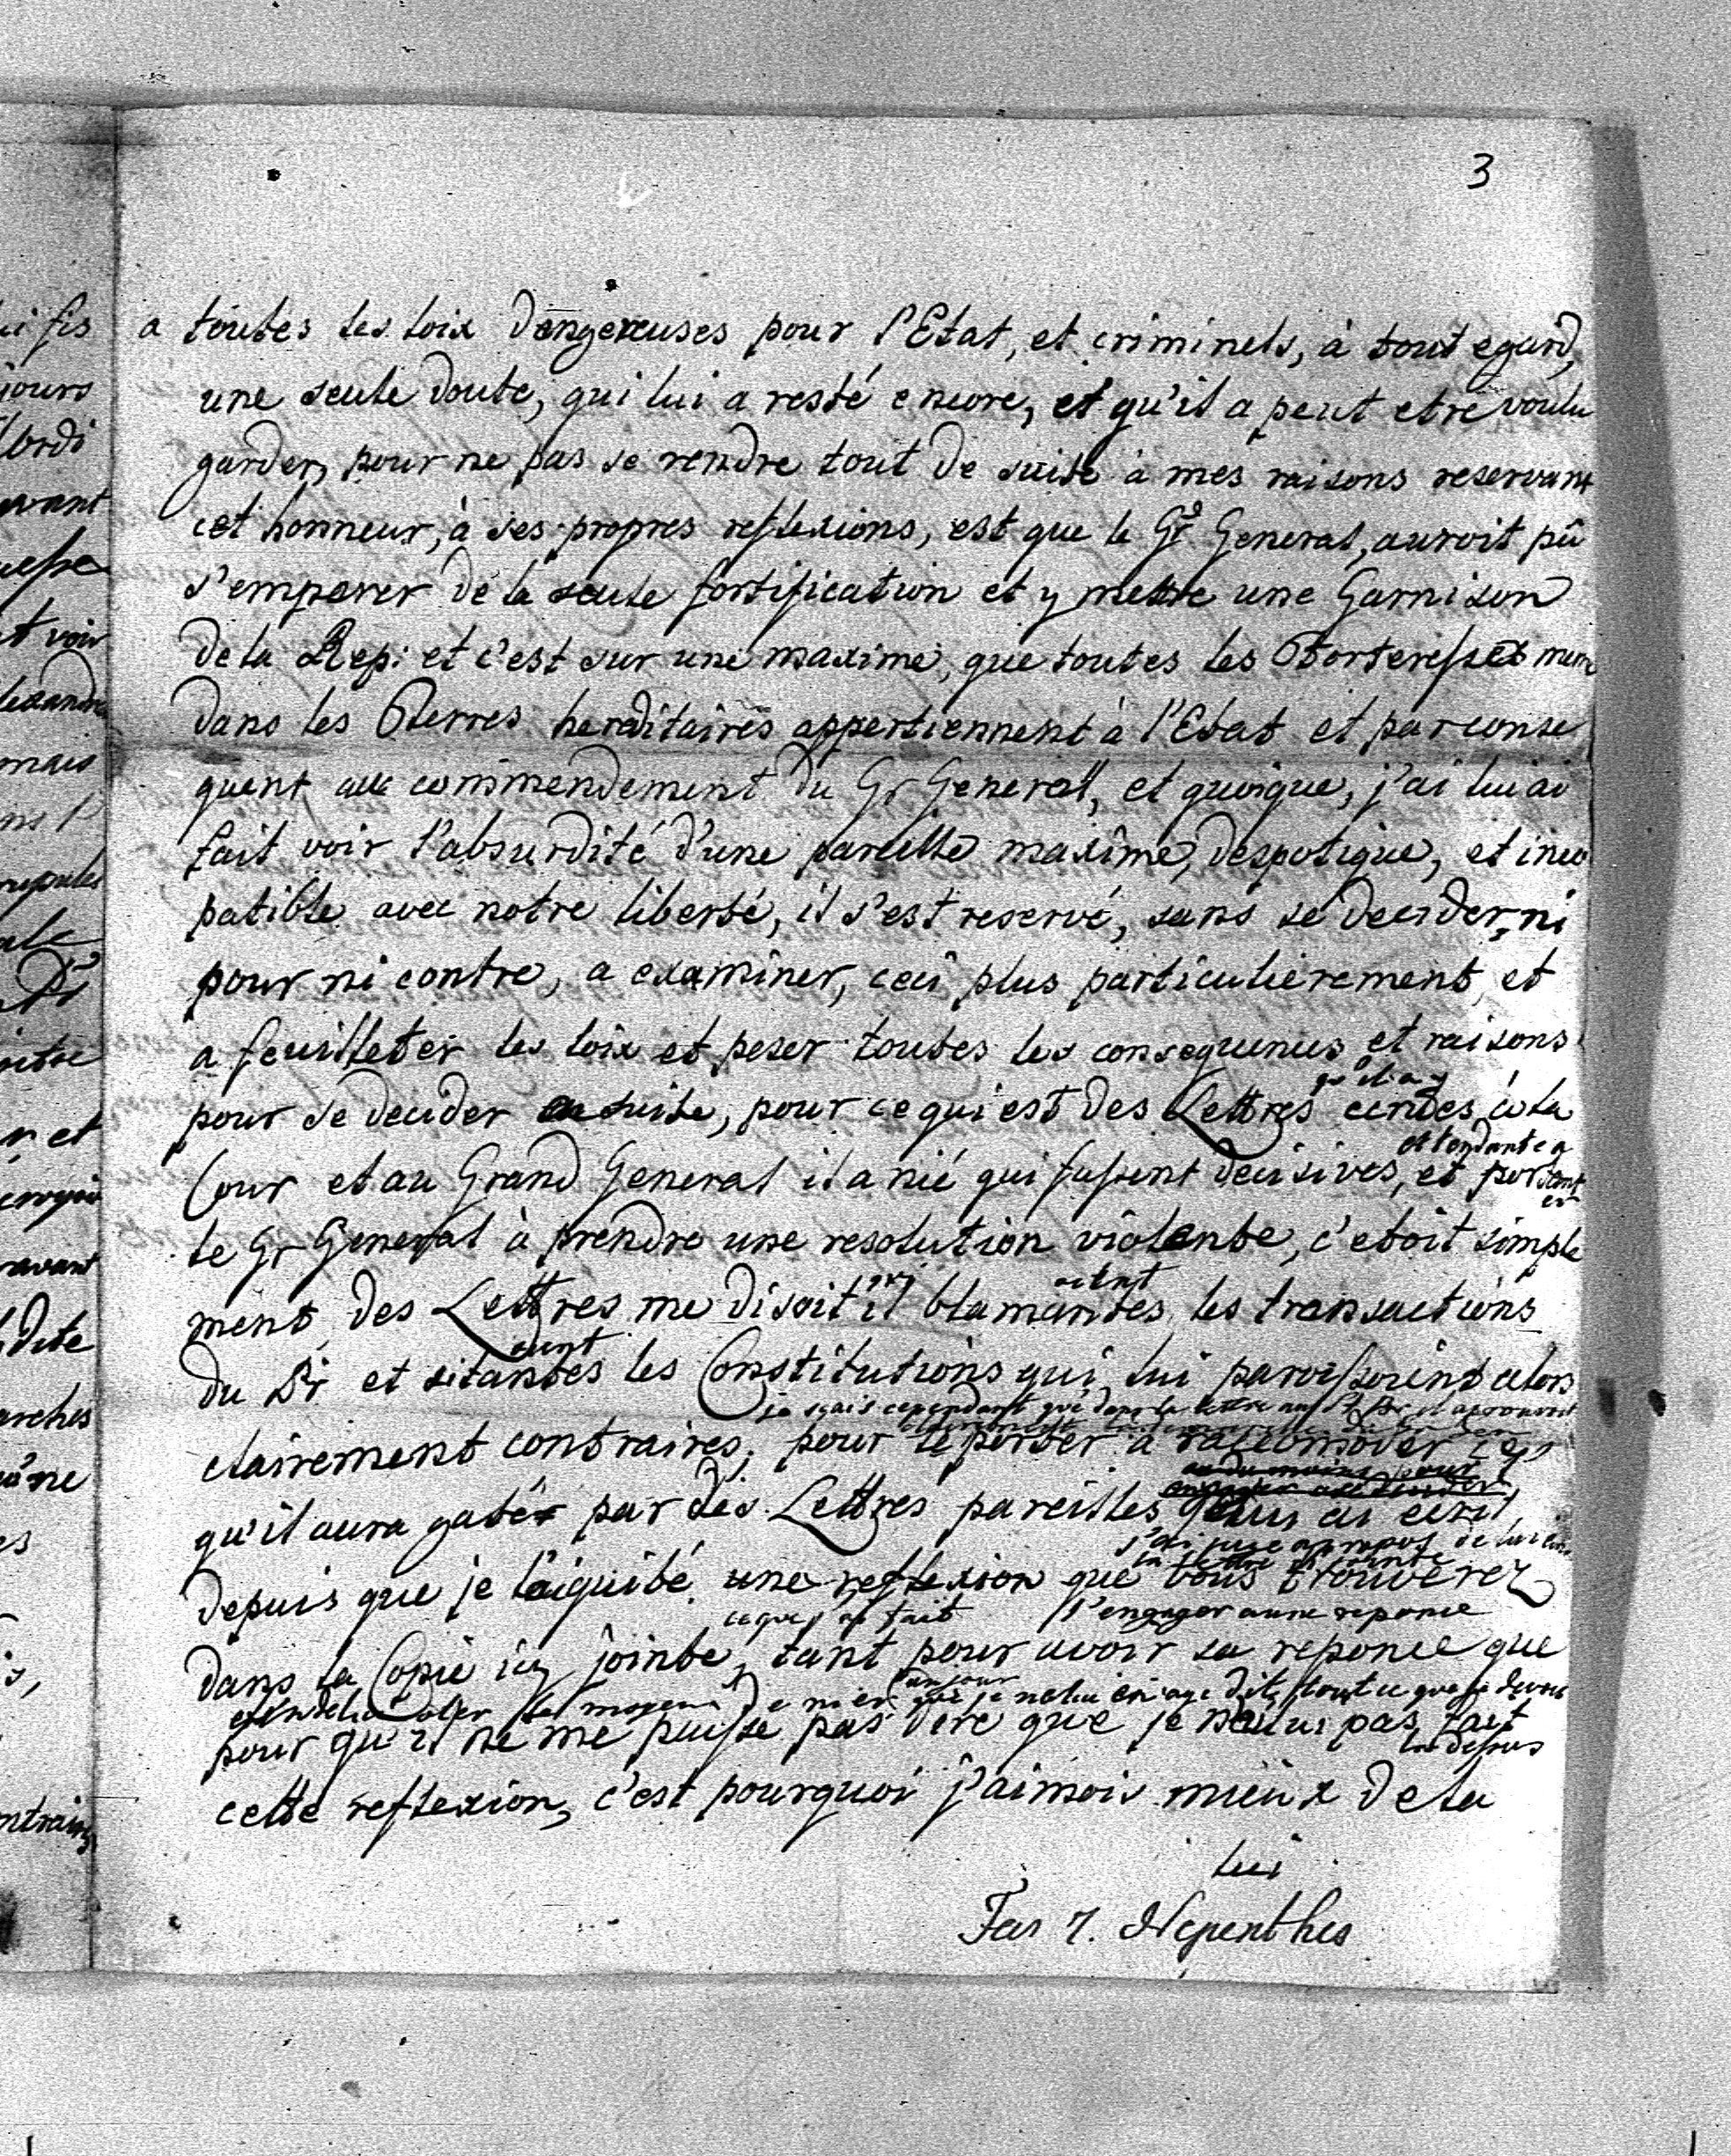 3
a toutes les loix dengereuses pour l'Etat, et criminels, à tout egard,
une seule doute, qui lui a resté encore, et qu'il a peut etre voulu
garder, pour ne pas se rendre tout de suite à mes raisons reservant
cet honneur, à ses propres reflexions, est que le Gr General, auroit pû
s'emparer de la seule fortification et y mettre une Garnison
de la Rep: et c'est sur une maxime, que toutes les Forteresses meme
dans les Terres hereditaires appertiennent à l'Etat et par conse
quent au commendement du Gr General, et quoique, j'ai lui ai
fait voir l'absurdité d'une pareille maxime, despotique, et inco
patible avec notre liberté, il s'est reservé, sans se decider, ni
pour ni contre, a examiner, ceci plus particulierement, et
a feuilleter les loix et peser toutes les consequences et raisons
qu'il a
pour se decider ensuite, pour ce qui est des Lettres ecrites à la
et tendante a
Cour et au Grand General il a nié qui fussent decisives, et portant
er
le Gr General à prendre une resolution violente, c'etoit simple
qui
ment des Lettres me disoit il blamantes, les transactions
du Pr et sitantes les Constitutions qui, lui paroissoient alors
je sçais cependant que dans la lettre
clairement contraires, pour le porter a raccomoder ce
qu'il aura gatér par des Lettres pareilles je lui ai ecrit,
j'ai jugé apropos de lui
la lettre ci jointe
depuis que je l'aiquité une reflexion que vous trouverez
ce que j'ai fait l'engager a une reponce
dans la Copie icy jointe, tant pour avoir sa reponce que
oter le moyen de nier un jour que je ne lui en aye dit, tout ce que je devois
pour qu'il ne me puisse pas dire que je ne lui pas fait
la dessus
cette reflexion, c'est pourquoi j'aimois mieux de la
lui
Fas 7. Nepenthes